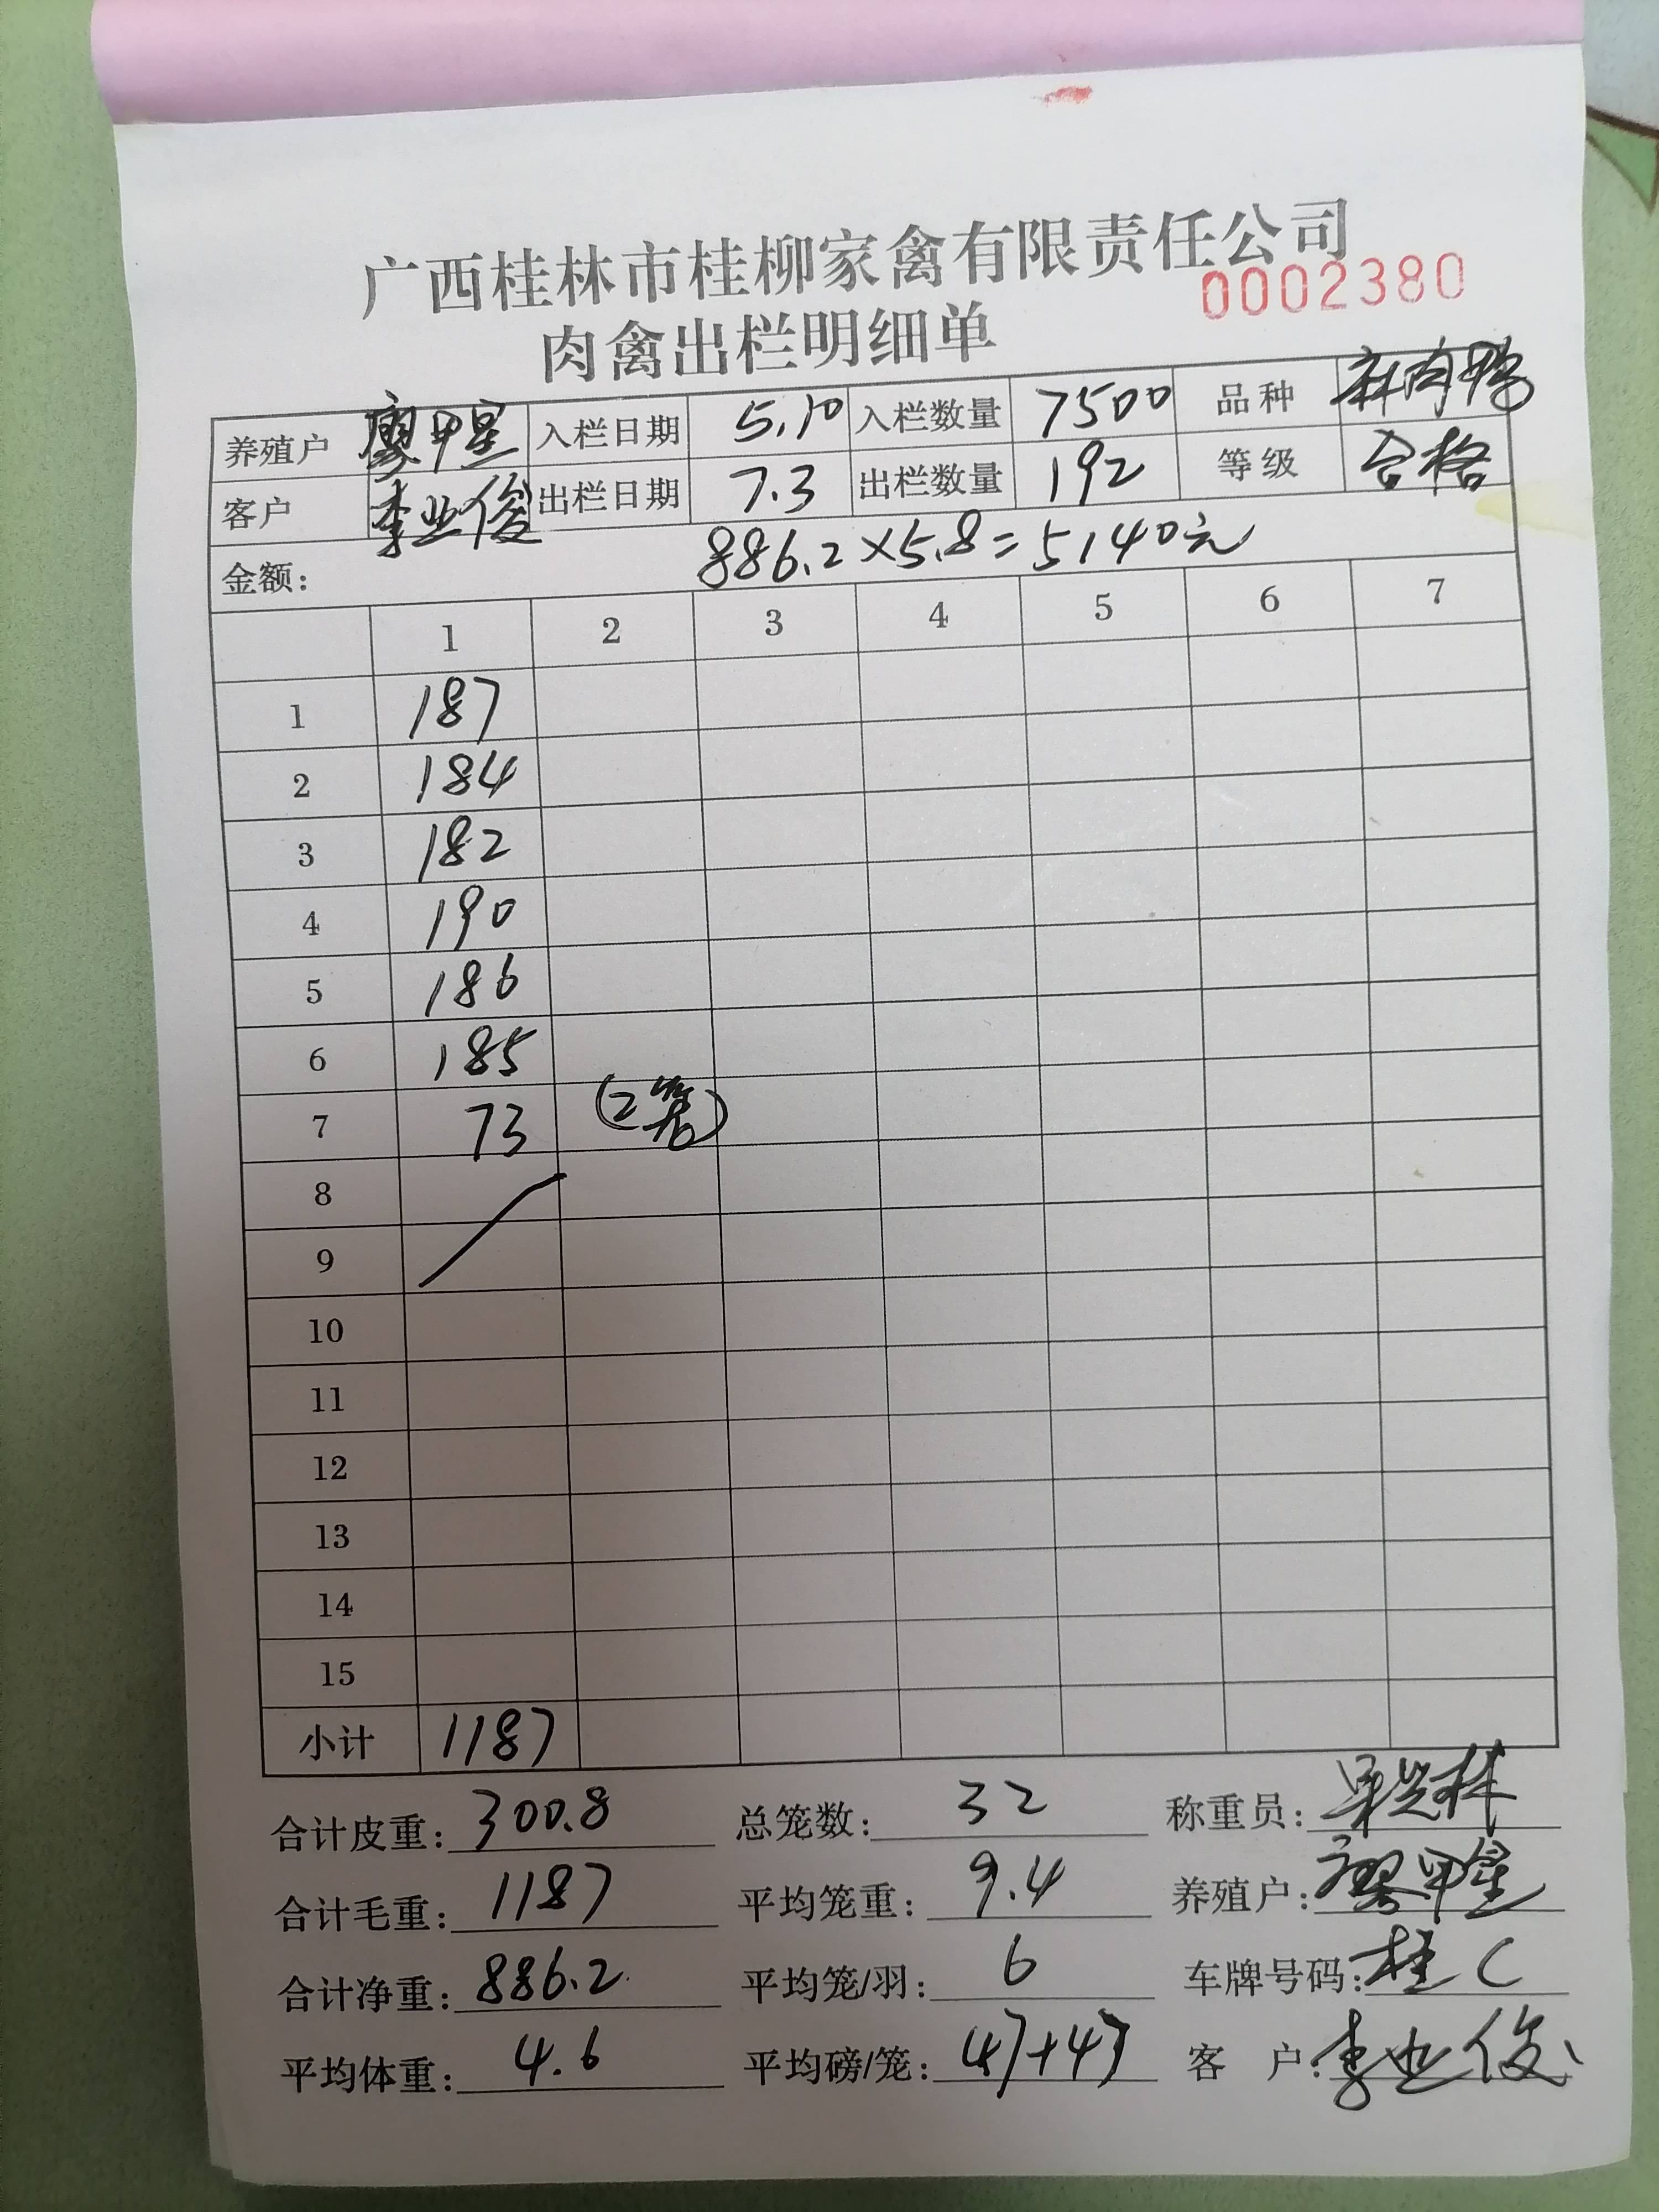 广西桂林市桂柳家禽有限责任公司
0002380
肉禽出栏明细单
养殖户 廖甲星 入栏日期 5.10 入栏数量 7500 品种 麻肉鸭
客户 李业俊 出栏日期 7.3 出栏数量 192 等级 合格
金额: 886.2×5.8=5140元
1 2 3 4 5 6 7
1 187
2 184
3 182
4 190
5 186
6 185
7 73 (2笼)
8
9
10
11
12
13
14
15
小计 1187
合计皮重: 300.8 总笼数: 32 称重员:
合计毛重: 1187 平均笼重: 9.4 养殖户: 廖甲星
合计净重: 886.2 平均笼/羽: 6 车牌号码: 桂C
平均体重: 4.6 平均磅/笼: 客户: 李业俊